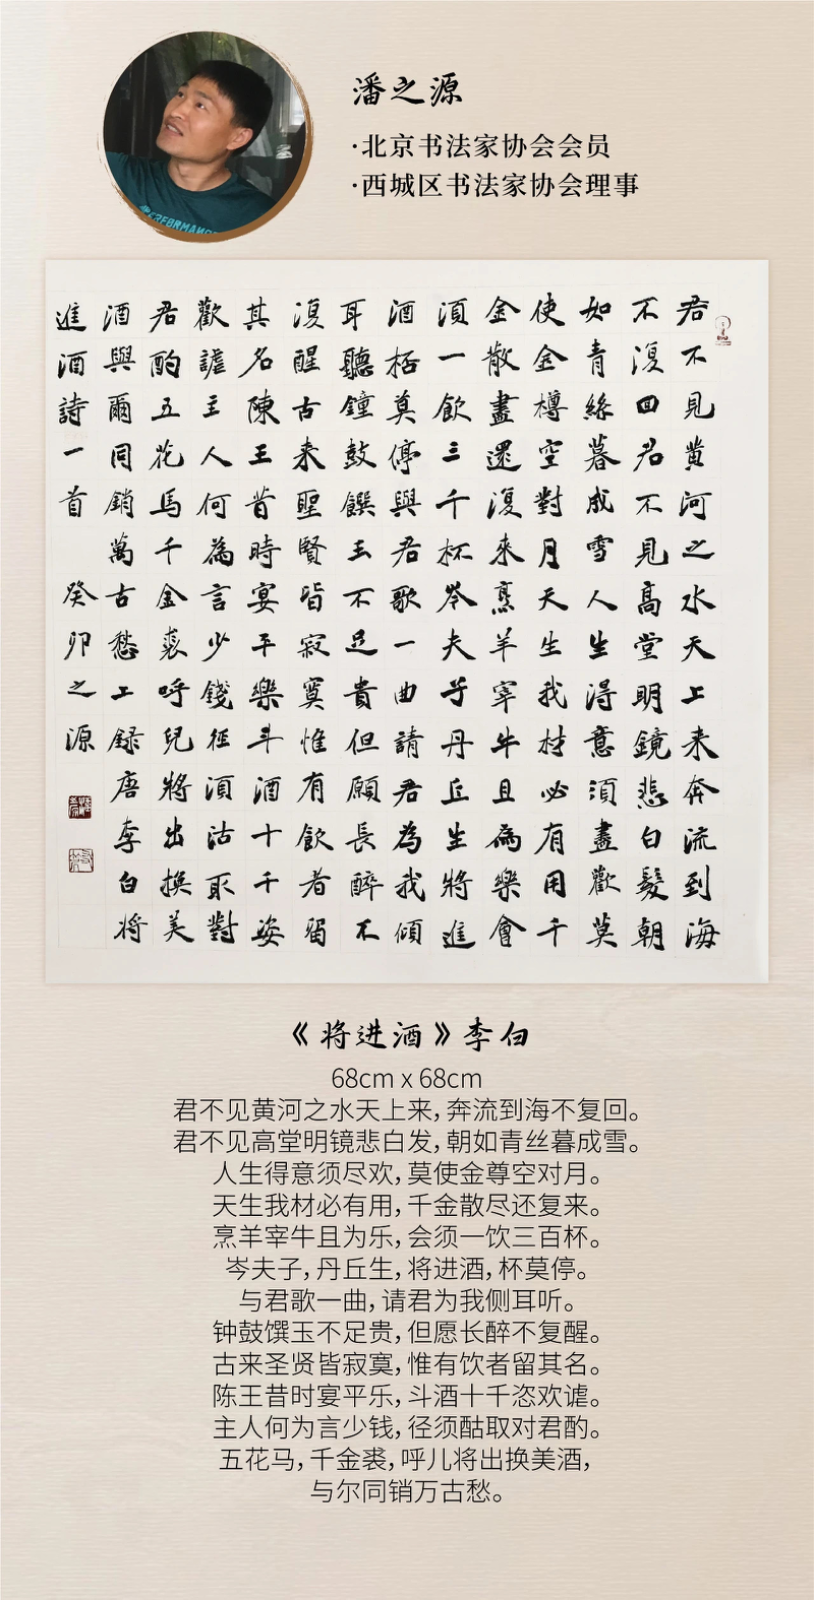 潘之源
·北京书法家协会会员
·西城区书法家协会理事
君不見黄河之水天上来奔流到海
不復回君不見高堂明鏡悲白髮朝
如青絲暮成雪人生得意須盡歡莫
使金樽空對月天生我材必有用千
金散盡還復來烹羊宰牛且為樂會
須一飲三千杯岑夫子丹丘生將進
酒桮莫停與君歌一曲請君為我傾
耳聽鐘鼓饌玉不足貴但願長醉不
復醒古来聖賢皆寂寞惟有飲者留
其名陳王昔時宴平樂斗酒十千姿
歡謔主人何為言少錢徑須沽取對
君酌五花馬千金裘呼兒將出換美
酒與爾同銷萬古愁上録唐李白将
進酒詩一首 癸卯之源
《将进酒》李白
68cm x 68cm
君不见黄河之水天上来，奔流到海不复回。
君不见高堂明镜悲白发，朝如青丝暮成雪。
人生得意须尽欢，莫使金尊空对月。
天生我材必有用，千金散尽还复来。
烹羊宰牛且为乐，会须一饮三百杯。
岑夫子，丹丘生，将进酒，杯莫停。
与君歌一曲，请君为我侧耳听。
钟鼓馔玉不足贵，但愿长醉不复醒。
古来圣贤皆寂寞，惟有饮者留其名。
陈王昔时宴平乐，斗酒十千恣欢谑。
主人何为言少钱，径须酤取对君酌。
五花马，千金裘，呼儿将出换美酒，
与尔同销万古愁。